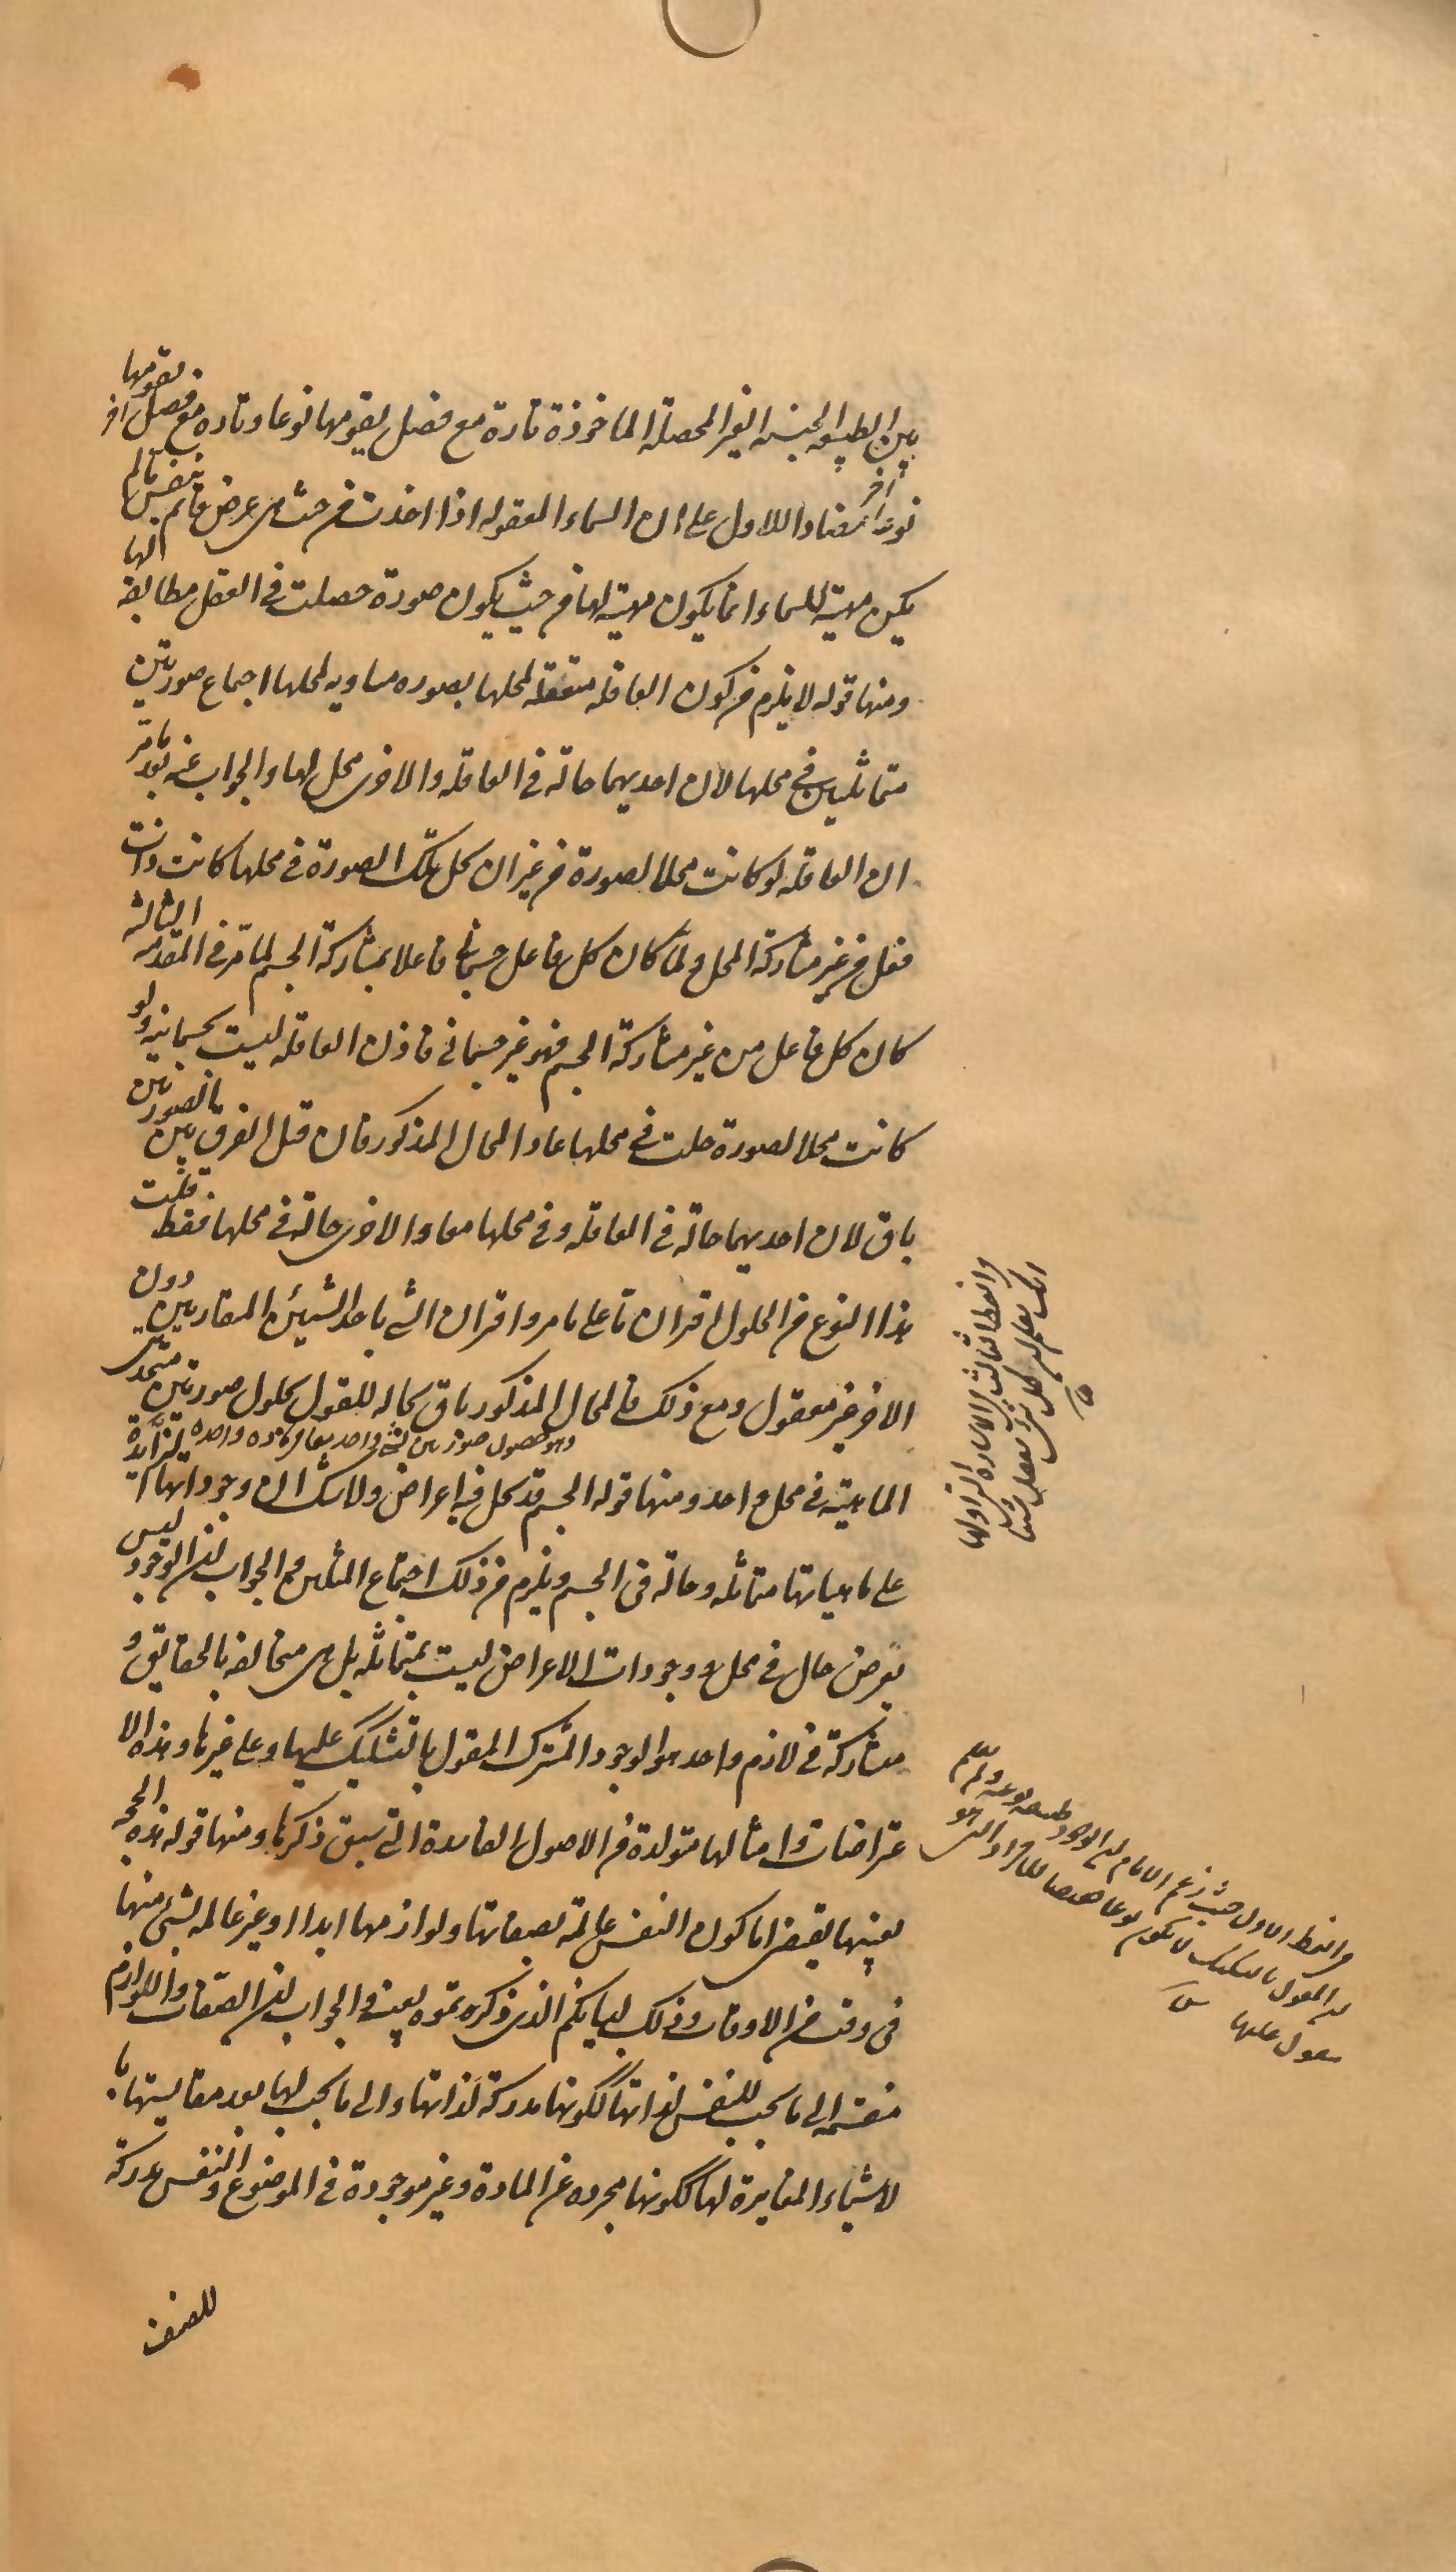 بين الطبيعه الجنسه الغير المحصلة الماخوذة تارة مع فصل يقومها نوعا وتاره مع فصل اخر يقومها
نوعا اخر مضادا للاول على ان السماء المعقوله اذا اخذت من حيث هى عرض قائم بنفس ما لم
يكن مهية للسماء انما يكون مهية لها من حيث يكون صورة حصلت فى العقل مطابقة لها
ومنها قوله لا يلزم من كون العاقله متعقله لمحلها بصوره مساويه لمحلها اجتماع صورتين
متماثلين فى محلها لان احديهما حالة فى العاقله والاخرى محل لها والجواب عنه بعد ما مر
ان العاقله لو كانت محلا لصورة من غير ان يحل تلك الصورة فى محلها كانت ذات
فعل من غير مشاركة المحل ولما كان كل فاعل جسمانى فاعلا بمشاركة الجسم لما مر فى المقدمه الثالثه
كان كل فاعل من غير مشاركة الجسم فهو غير جسمانى فاذن العاقله ليست بجسمانيه ولو
كانت محلا لصورة حلت فى محلها عاد المحال المذكور فان قيل الفرق بين الصورتين
باق لان احديهما حالة فى العاقله وفى محلها معا والاخرى حالة فى محلها فقط قلت
هذا النوع من الحلول اقتران ما على ما مر واقتران الشى باحد الشيئين المتقارنين دون
الاخر غير معقول ومع ذلك فالمحال المذكور باق بحاله للقول بحلول صورتين متحدتى
وهو حصول صورتين لشى واحد فى ماده واحده
الماهية فى محل واحد ومنها قوله الجسم قد يحل فيه اعراض ولا شك ان وجوداتها الزائدة
على ماهياتها متماثله وحالة فى الجسم ويلزم من ذلك اجتماع المثلين والجواب ان الوجود ليس
بعرض حال فى محل ووجودات الاعراض ليست بمتماثله بل هى متخالفه بالحقايق و
مشاركة فى لازم واحد هو الوجود المشترك المقول بالتشكيك عليها وعلى غيرها وهذه الا
عتراضات وامثالها متولدة من الاصول الفاسدة التى سبق ذكرها ومنها قوله هذه الحجه
بعينها يقتضى اما كون النفس عالمة بصفاتها ولوازمها ابدا او غير عالمه بشى منها
فى وقت من الاوقات وذلك لبيانكم الذى ذكرتموه بعينه والجواب ان الصفات واللوازم
منقسمه الى ما يجب للنفس لذاتها ككونها مدركة لذاتها والى ما يجب لها بعد مقايستها با
لاشياء المغايرة لها ككونها مجرده عن المادة وغير موجودة فى الموضوع والنفس مدركة
للصنف
والنمط الثالث الاشارة التى اولها
انك تعلم ان كل شى يعقل شيئا
من النمط الاول حيث زعم الامام ان الوجود طبيعه نوعيه ولم يعلم
ان المقول بالتشكيك لا يكون نوعا
مقول عليها